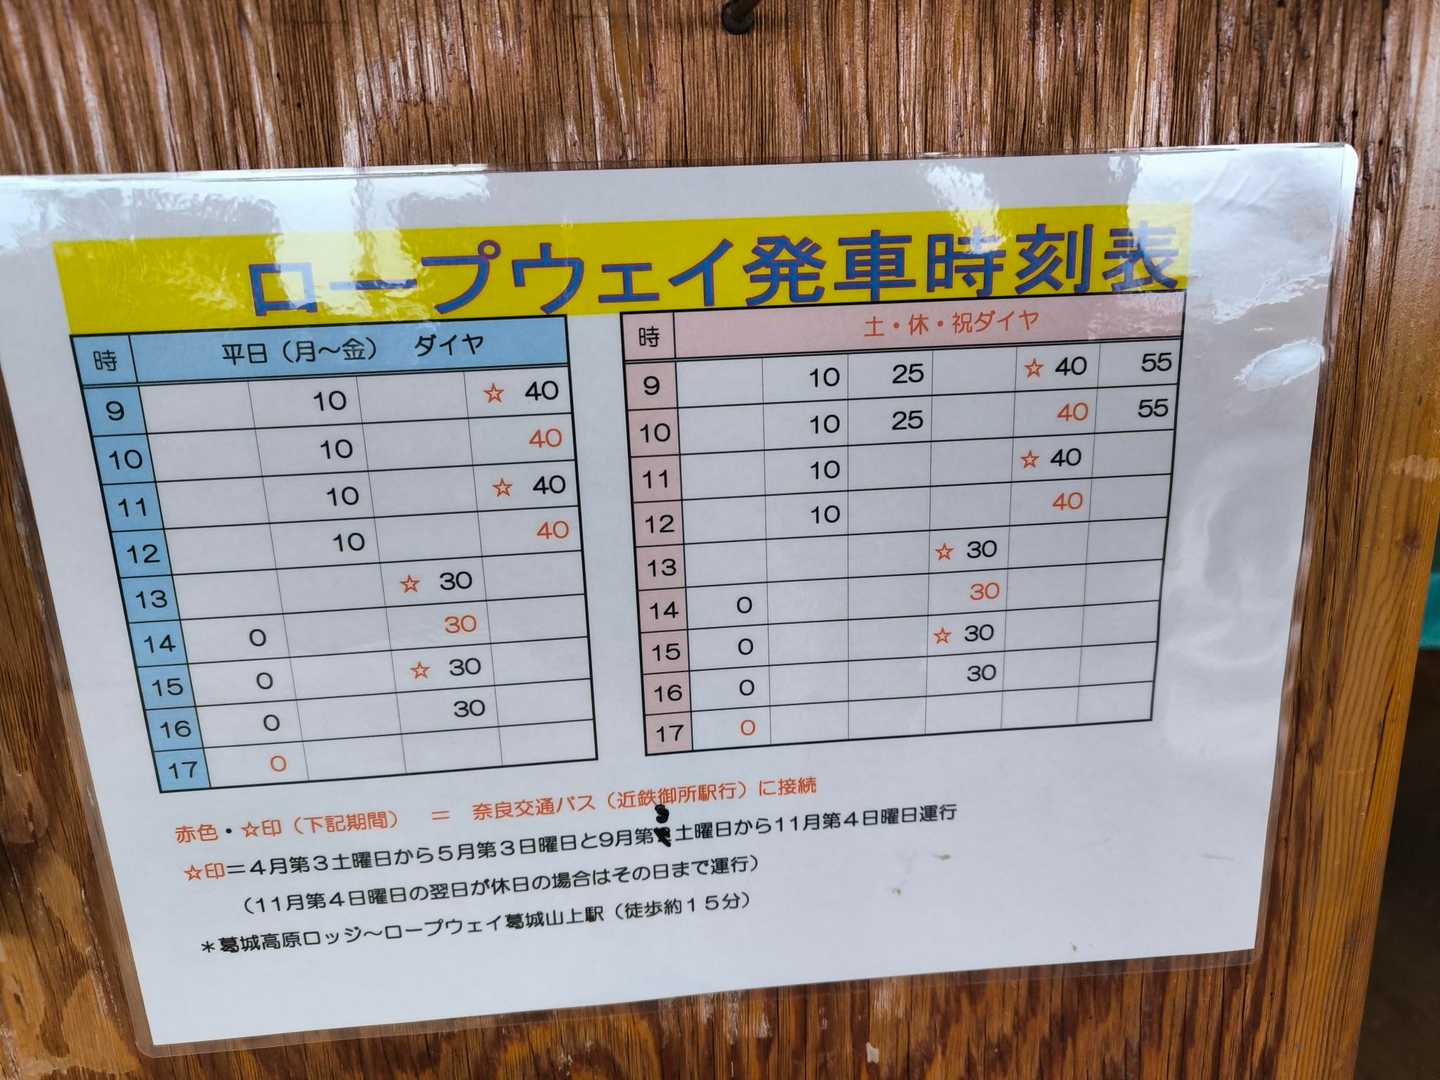 ロープウェイ発車時刻表
時 平日（月～金） ダイヤ
9 10 ☆ 40
10 10 40
11 10 ☆ 40
12 10 40
13 ☆ 30
14 0 30
15 0 ☆ 30
16 0 30
17 0
時 土・休・祝ダイヤ
9 10 25 ☆ 40 55
10 10 25 40 55
11 10 ☆ 40
12 10 40
13 ☆ 30
14 0 30
15 0 ☆ 30
16 0 30
17 0
赤色・☆印（下記期間） ＝ 奈良交通バス（近鉄御所駅行）に接続
☆印＝４月第３土曜日から５月第３日曜日と9月第3土曜日から11月第４日曜日運行
（11月第４日曜日の翌日が休日の場合はその日まで運行）
＊葛城高原ロッジ～ロープウェイ葛城山上駅（徒歩約１５分）